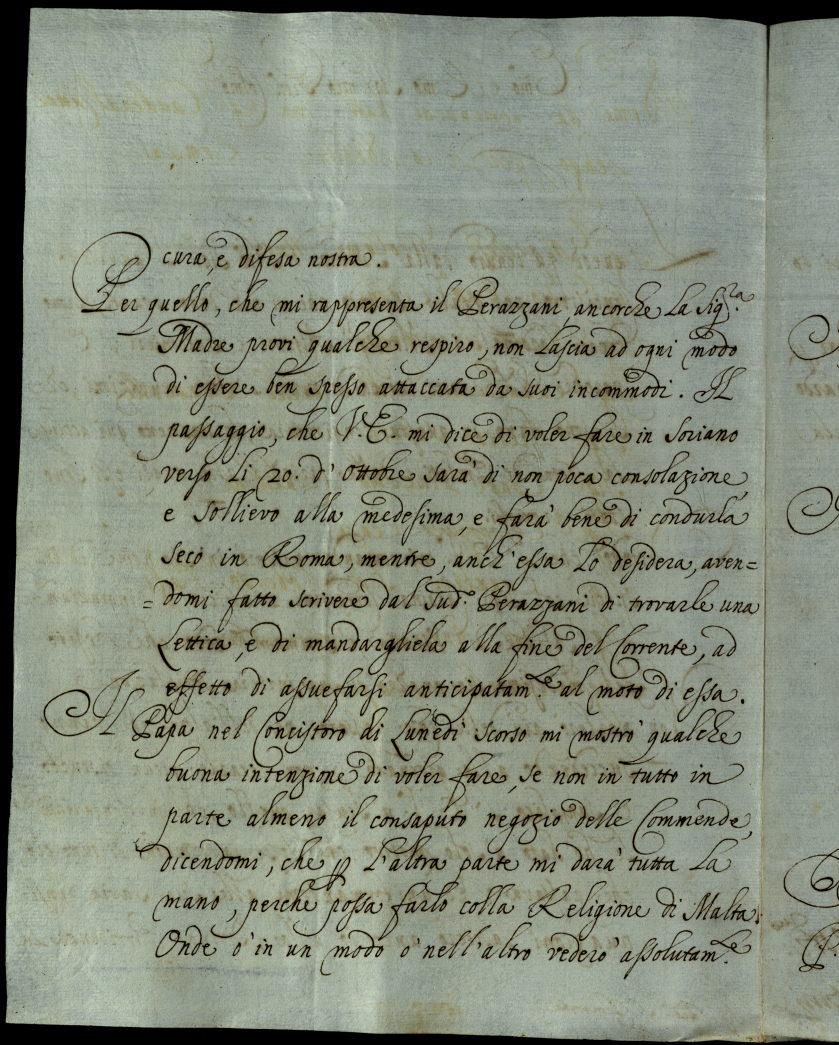 cura, e difesa nostra.
Per quello, che mi rappresenta il Perazzani ancorche la Sig.ra
Madre provi qualche respiro, non lascia ad ogni modo
di essere ben spesso attaccata da suoi incommodi. Il
passaggio, che V. E. mi dice di voler fare in Soriano
verso li 20. d' Ottobre sarà di non poca consolazione,
e sollievo alla medesima, e farà bene di condurla
seco in Roma, mentre, anch'essa lo desidera, aven=
=domi fatto scrivere dal sud.o Perazzani di trovarle una
Lettica, e di mandargliela alla fine del Corrente, ad
effetto di assuefarsi anticipatam.te al moto di essa.
Il Papa nel Concistoro di Lunedì scorso mi mostrò qualche
buona intenzione di voler fare, se non in tutto in
parte almeno il consaputo negozio delle Commende,
dicendomi, che p l'altra parte mi darà tutta la
mano, perche possa farlo colla Religione di Malta.
Onde ò in un modo ò nell'altro vederò assolutam.te